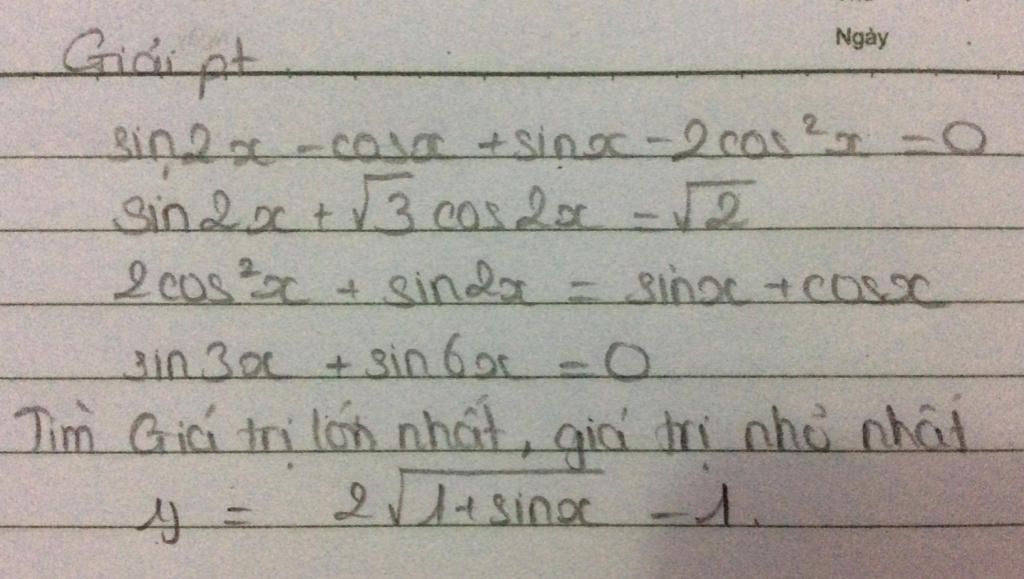 Ngày
Giải pt
sin2x - cosx + sinx - 2cos²x = 0
sin2x + √3 cos2x = √2
2cos²x + sin2x = sinx + cosx
sin3x + sin6x = 0
Tìm Giá trị lớn nhất, giá trị nhỏ nhất
y = 2√(1+sinx) - 1.